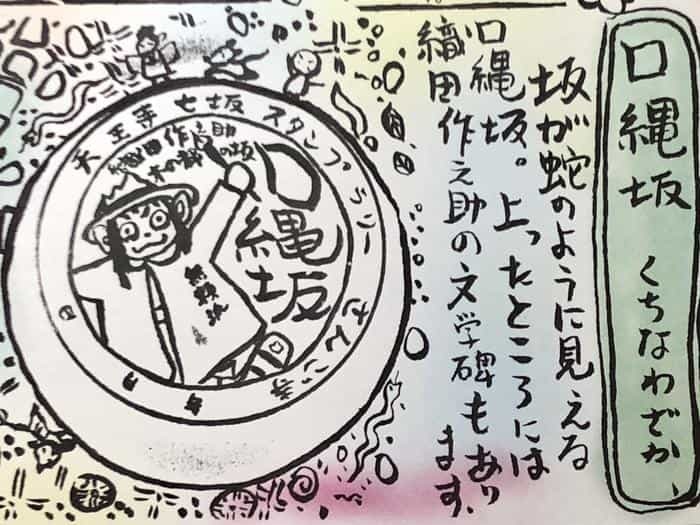 口縄坂 くちなわざか、
坂が蛇のように見える
口縄坂。上ったところには
織田作之助の文学碑もあります。
天王寺七坂スタンプラリー
織田作之助
木の都の坂
口縄坂
無頼派
年 月 日